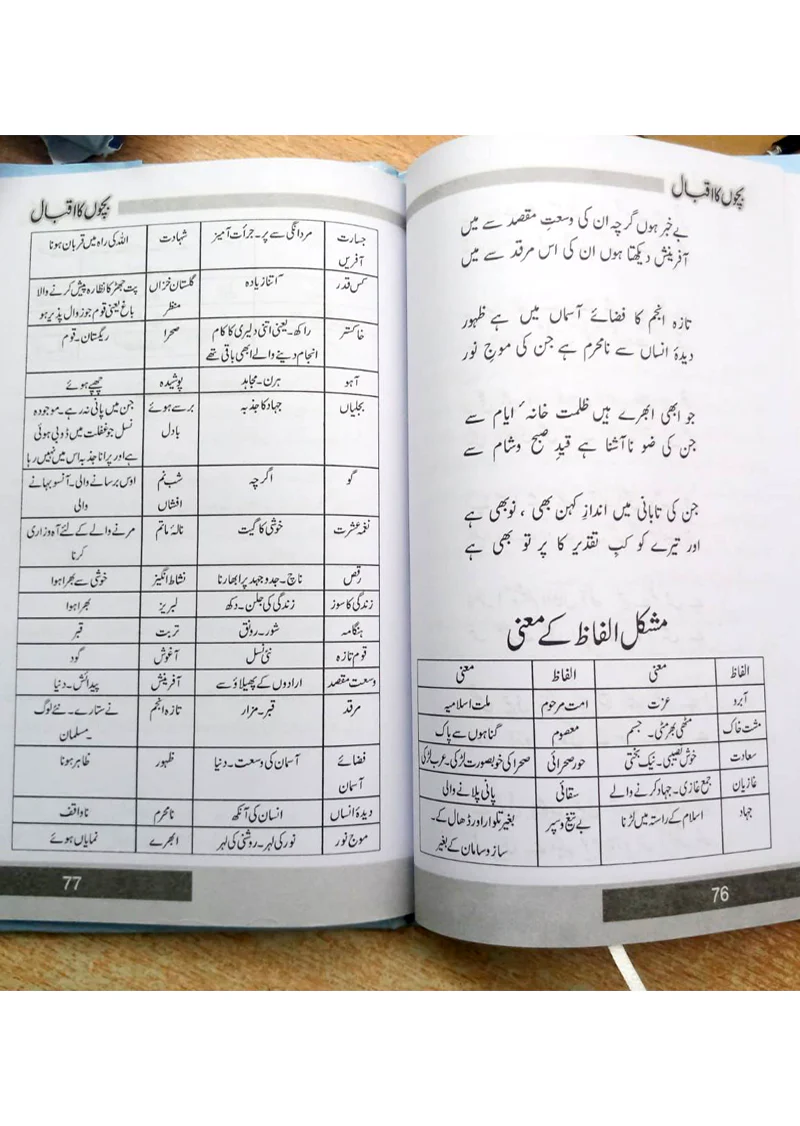 بچوں کا اقبال
بے خبر ہوں گرچہ ان کی وسعتِ مقصد سے میں
آفرینش دیکھتا ہوں ان کی اس مرقد سے میں
تازہ انجم کا فضائے آسماں میں ہے ظہور
دیدۂ انساں سے نامحرم ہے جن کی موجِ نور
جو ابھی ابھرے ہیں ظلمت خانۂ ایام سے
جن کی ضو ناآشنا ہے قیدِ صبح وشام سے
جن کی تابانی میں اندازِ کہن بھی ، نوبھی ہے
اور تیرے کوکبِ تقدیر کا پر تو بھی ہے
مشکل الفاظ کے معنی
الفاظ معنی الفاظ معنی
آبرو عزت امت مرحوم ملت اسلامیہ
مشت خاک مٹھی بھر مٹی۔ جسم معصوم گناہوں سے پاک
سعادت خوش نصیبی۔ نیک بختی حور صحرائی صحرا کی خوبصورت لڑکی۔ عرب لڑکی
غازیان جمع غازی۔ جہاد کرنے والے سقائی پانی پلانے والی
جہاد اسلام کے راستہ میں لڑنا بے تیغ و سپر بغیر تلوار اور ڈھال کے۔
ساز و سامان کے بغیر
76
بچوں کا اقبال
جسارت مردانگی سے پر۔ جرأت آمیز شہادت اللہ کی راہ میں قربان ہونا
آفریں
کس قدر اتنا زیادہ گلستان خزاں پت جھڑ کا نظارہ پیش کرنے والا
منظر باغ یعنی قوم جو زوال پذیر ہو
خاکستر راکھ۔ یعنی اتنی دلیری کا کام صحرا ریگستان۔ قوم
انجام دینے والے ابھی باقی تھے
آہو ہرن۔ مجاہد پوشیدہ چھپے ہوئے
بجلیاں جہاد کا جذبہ برسے ہوئے جن میں پانی نہ رہے۔ موجودہ
بادل نسل جو غفلت میں ڈوبی ہوئی
ہے اور پرانا جذبہ اس میں نہیں رہا
گو اگر چہ شب نم اوس برسانے والی۔ آنسو بہانے
افشاں والی
نغمہ عشرت خوشی کا گیت نالۂ ماتم مرنے والے کے لئے آہ و زاری
کرنا
رقص ناچ۔ جدوجہد پر ابھارنا نشاط انگیز خوشی سے بھرا ہوا
زندگی کا سوز زندگی کی جلن۔ دکھ لبریز بھرا ہوا
ہنگامہ شور۔ رونق تربت قبر
قوم تازہ نئی نسل آغوش گود
وسعت مقصد ارادوں کے پھیلاؤ سے آفرینش پیدائش۔ دنیا
مرقد قبر۔ مزار تازہ انجم نے ستارے۔ نئے لوگ
۔مسلمان
فضائے آسمان کی وسعت۔ دنیا ظہور ظاہر ہونا
آسمان
دیدۂ انساں انسان کی آنکھ نامحرم ناواقف
موج نور نور کی لہر۔ روشنی کی لہر ابھرے نمایاں ہوئے
77